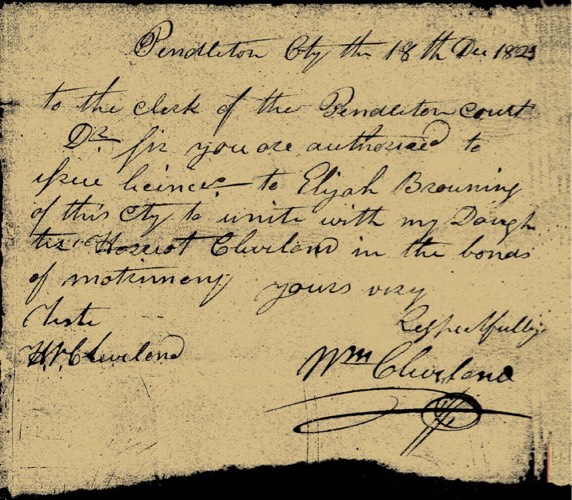 Pendleton Cty the 18th Dec 1823
to the clerk of the Pendleton court
Dr. sir you are authorized to
issue licince to Elijah Browning
of this Cty to unite with my Daugh
ter Cleveland in the bonds
of matrimony yours very
Respectfully
Teste
H. Cleveland
Wm Cleveland